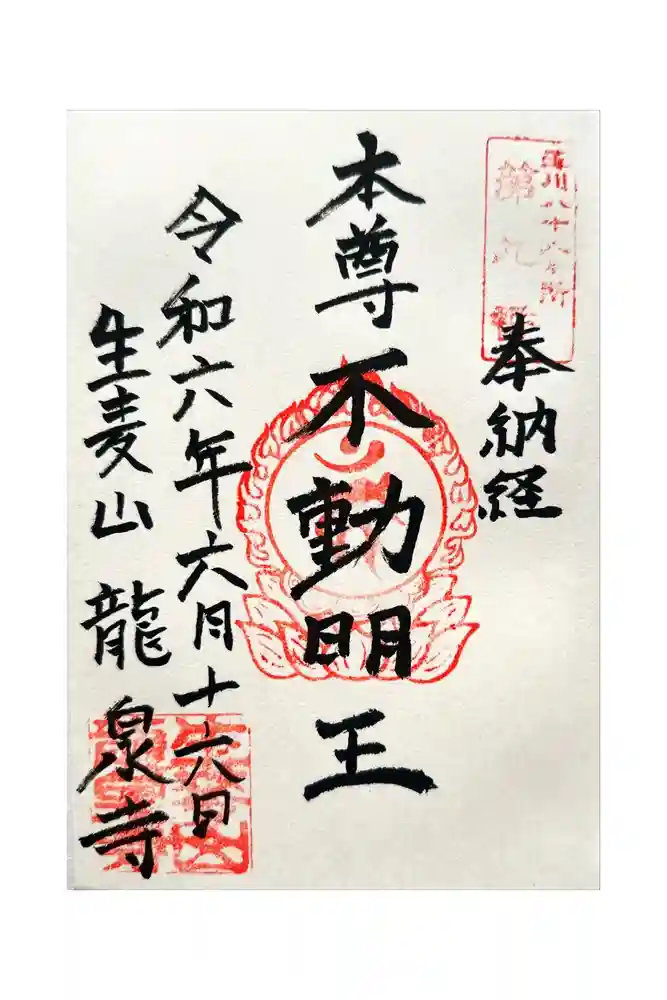 奉納経
本尊不動明王
令和六年六月十六日
生麦山龍泉寺